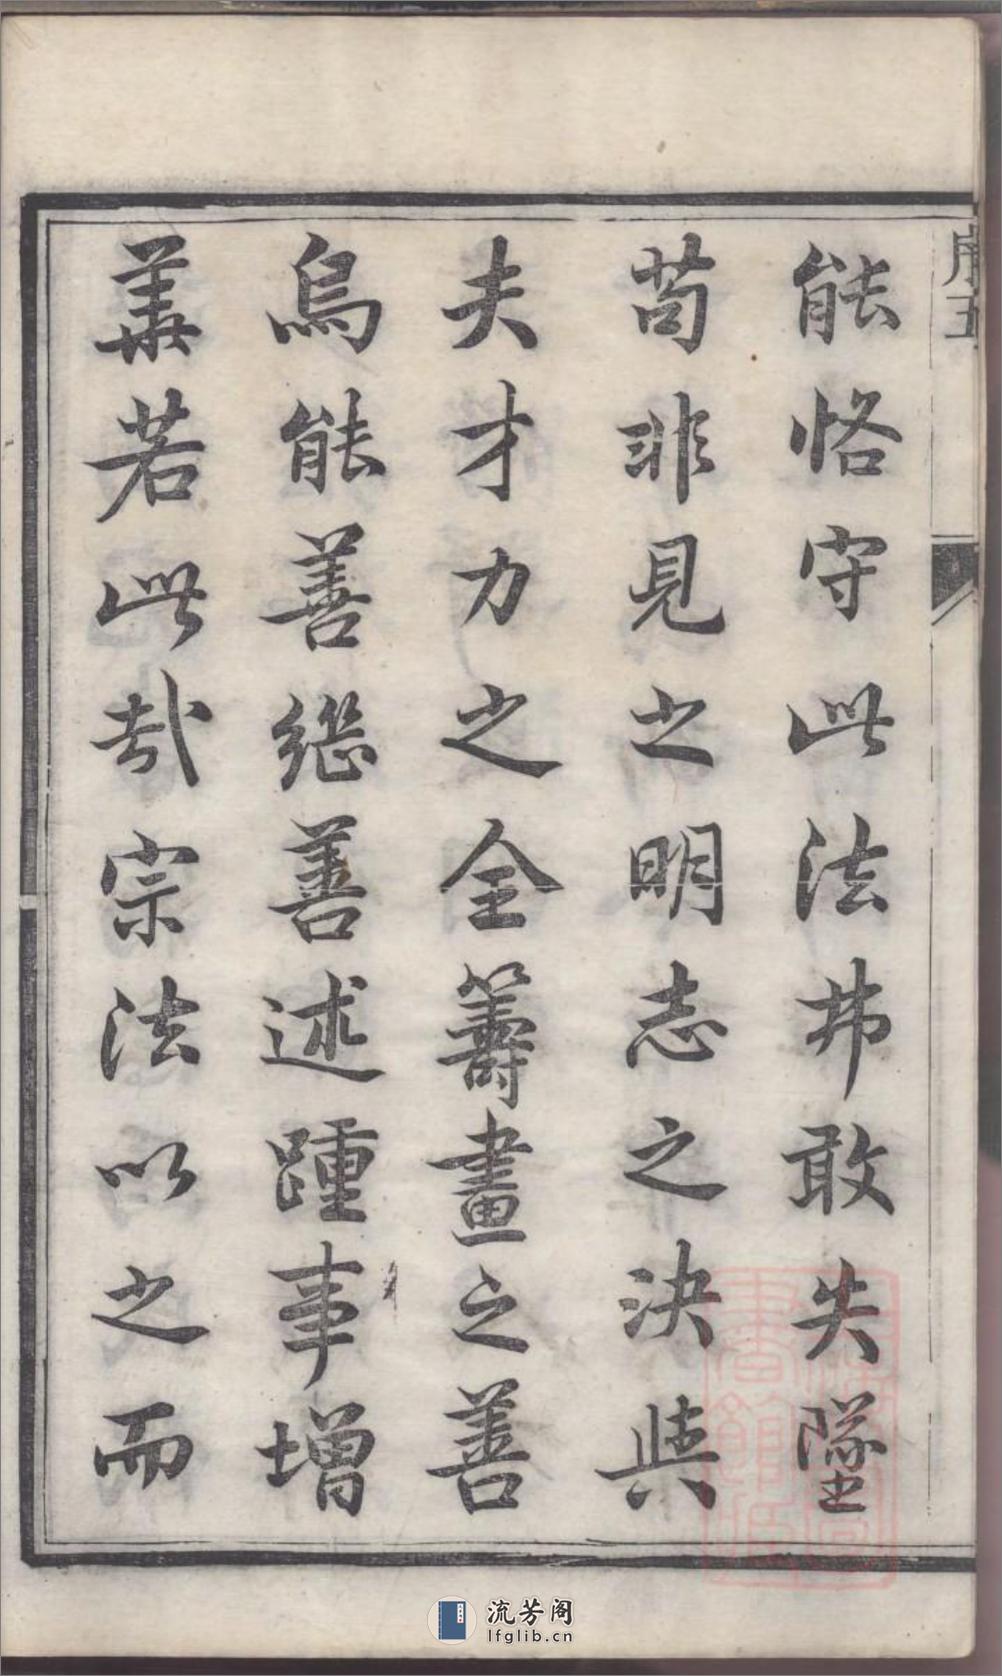 序五
能恪守此法弗敢失墜
苟非見之明志之決與
夫才力之全籌畫之善
烏能善繼善述踵事增
華若此哉宗法以之而
流芳阁
lfglib.cn